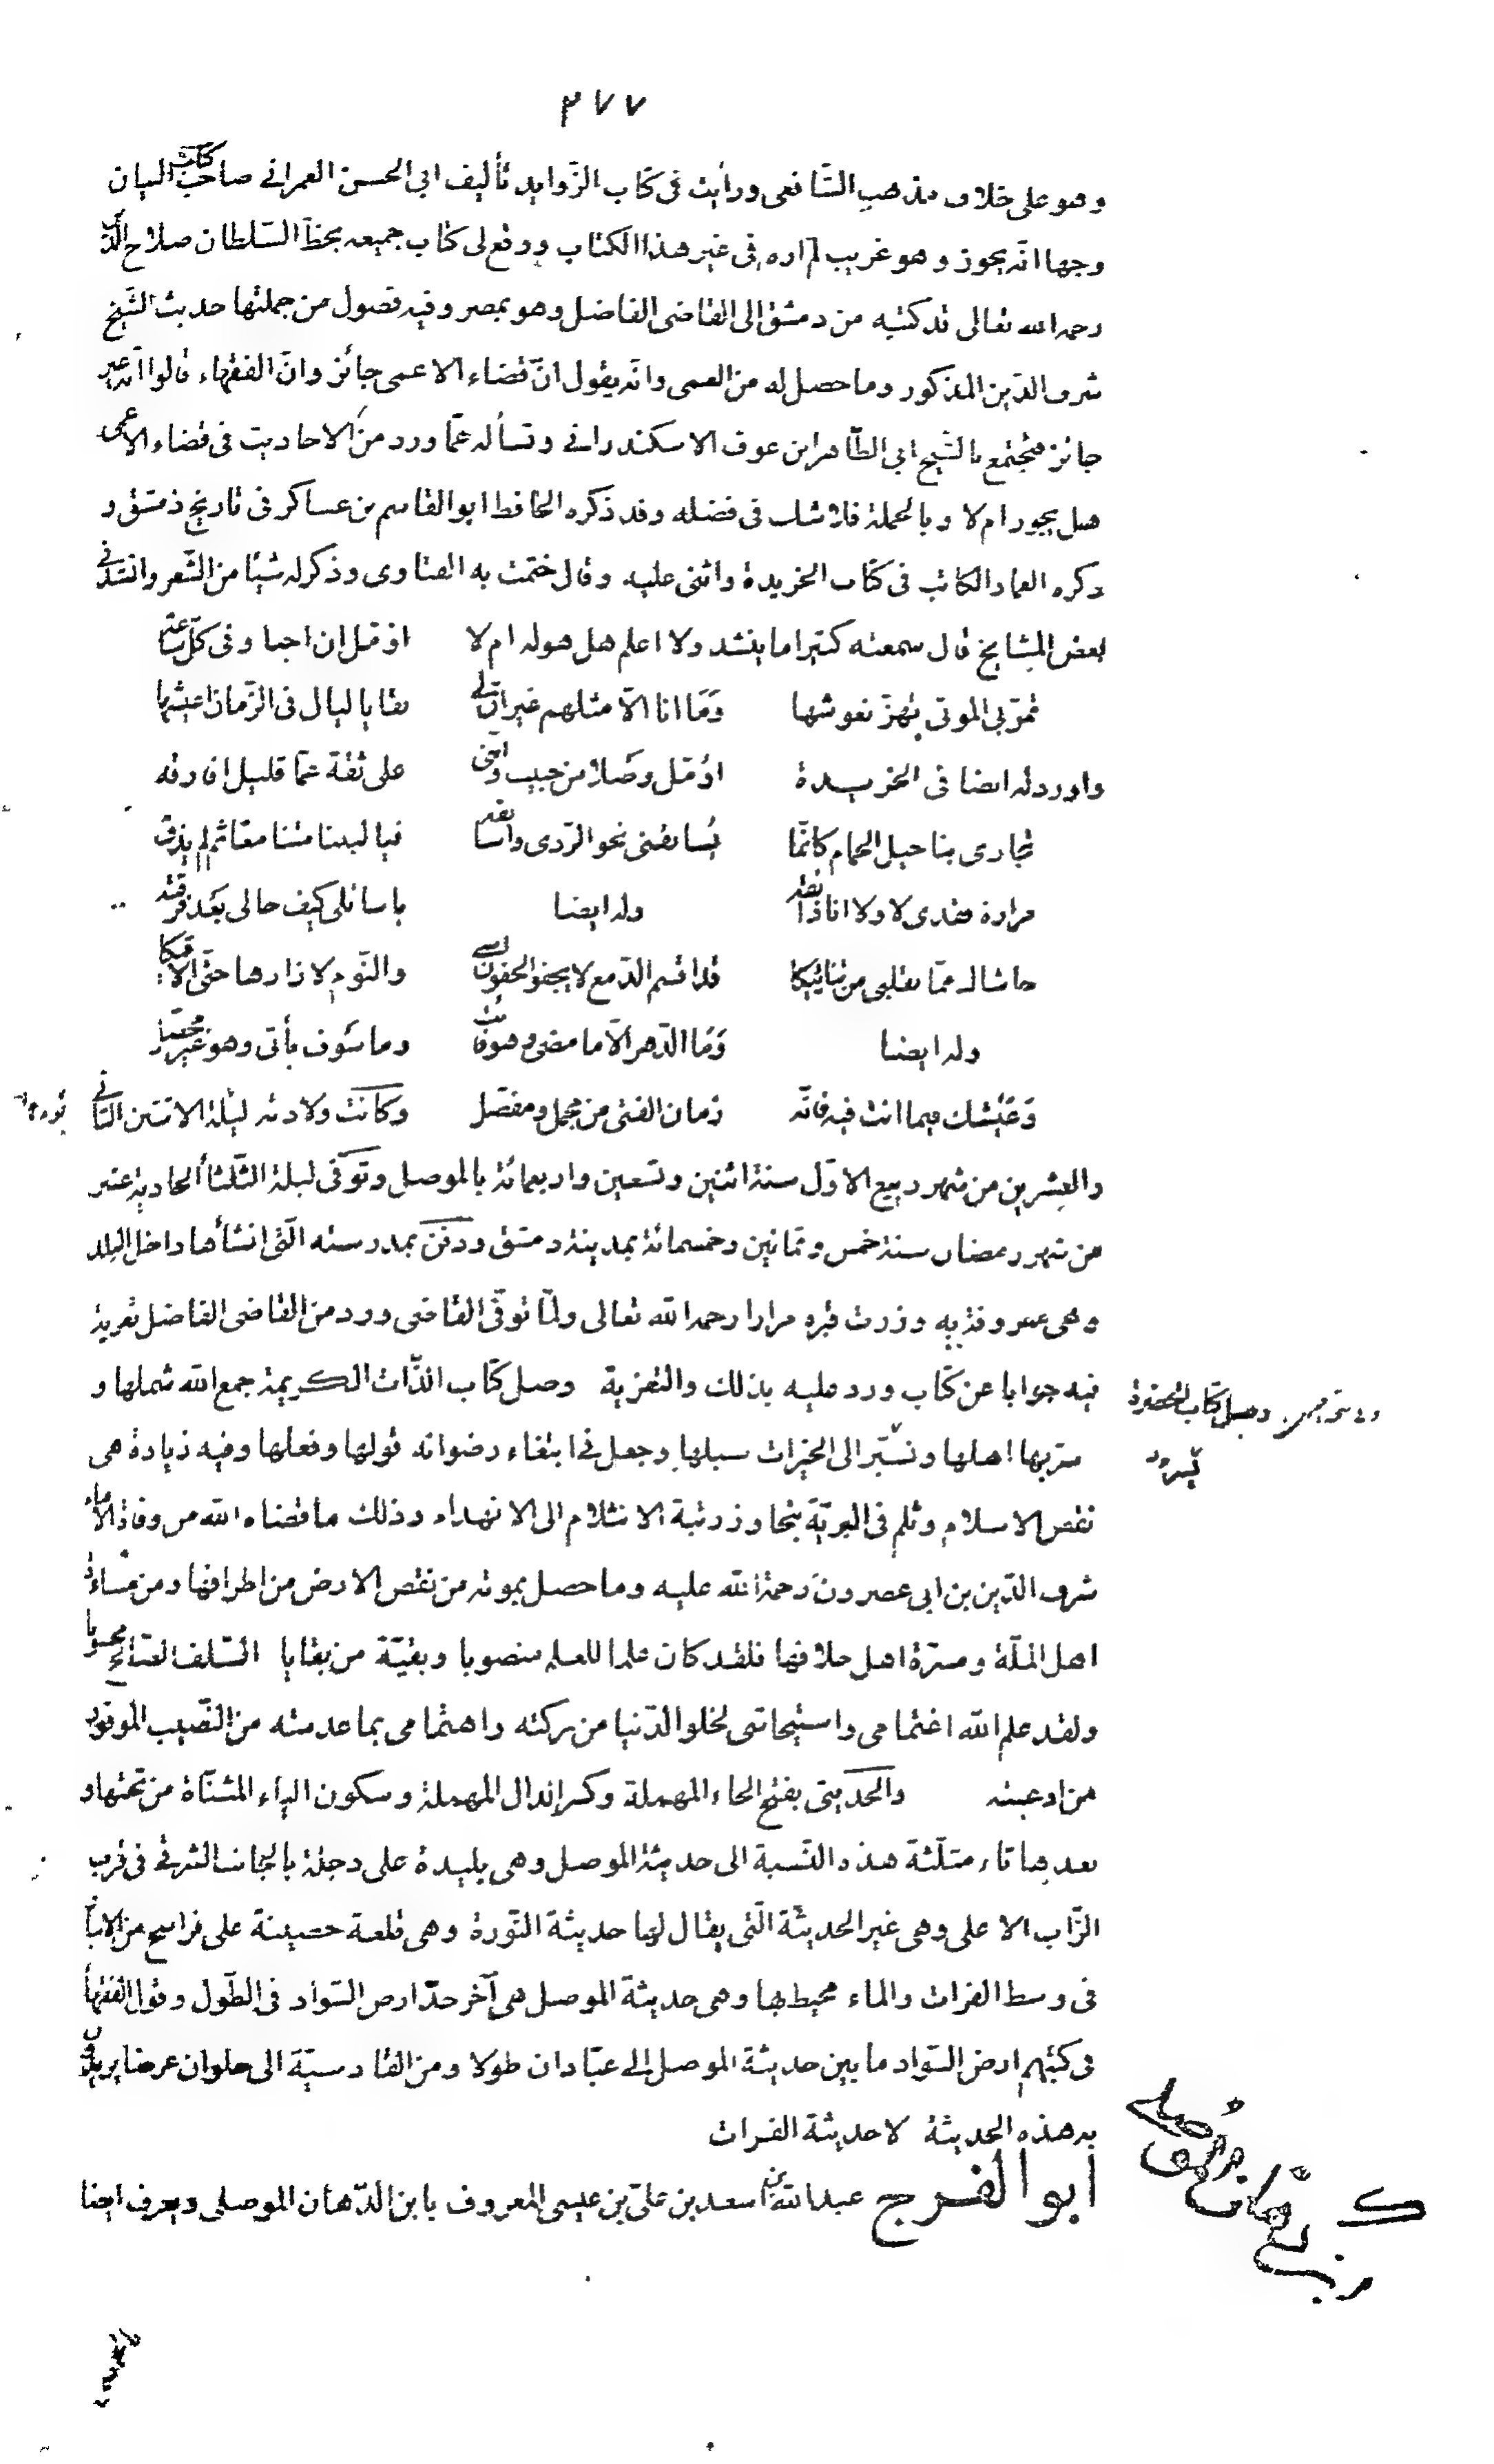 ٢٧٧
وهو على خلاف مذهب الشافعى ورأيت فى كتاب الزّوايد تأليف ابى الحسن العمرانى صاحب كتاب البيان
وجها انّه يجوز وهو غريب لم اره فى غير هذا الكتاب ووقع لى كتاب جميعه بخطّ السّلطان صلاح الدّين
رحمه الله تعالى قد كتبه من دمشق الى القاضى الفاضل وهو بمصر وفيه فصول من جملتها حديث الشّيخ
شرف الدّين المذكور وما حصل له من العمى وانّه يقول انّ قضاء الاعمى جائز وانّ الفقهاء قالوا انّه غير
جائز فتجتمع بالشّيخ ابى الطّاهر ابن عوف الاسكندرانى وتسأله عمّا ورد من الاحاديث فى قضاء الاعمى
هل يجوز ام لا وبالجملة فلا شك فى فضله وقد ذكره الحافظ ابو القاسم بن عساكر فى تاريخ دمشق و
ذكره العماد الكاتب فى كتاب الخريدة واثنى عليه وقال ختمت به الفتاوى وذكر له شيئا من الشّعر وانشدنى
بعض المشايخ قال سمعته كثيرا ما ينشد ولا اعلم هل هو له ام لا اؤمّل ان احيا وفى كلّ ساعة
تمرّ بى الموتى تهزّ نعوشها وَمَا انا الاّ مثلهم غير انّ لى بقايا ليال فى الزّمان اعيشها
واورد له ايضا فى الخريدة اؤمّل وصلا من حبيب وانّنى على ثقة عمّا قليل افارقه
تجارى بنا خيل الحمام كانّما يُسابقنى نحو الرّدى واسابقه فيا ليتنا متنا معًا ثم لم يذق
مرارة فقدى لا ولا انا ذائقه وله ايضا يا سائلى كيف حالى بَعْد فرقته
حاشاك ممّا بقلبى من تنائيكا قد اقسم الدّمع لا يجفو الجفون اسى والنّوم لا زارها حتّى الاقيكا
وله ايضا وَمَا الدّهر الاّ ما مضى وهو فائت وما سَوف يأتى وهو غير محصّل
وَعَيْشك فيما انت فيه فانّه زمان الفتى من مجمل ومفصّل وكانت ولادته ليلة الاثنين الثانى
والعشرين من شهر ربيع الاوّل سنة اثنين وتسعين واربعمائة بالموصل وتوفّى ليلة الثّلثا الحادية عشر
من شهر رمضان سنة خمس وثمانين وخمسمائة بمدينة دمشق ودفن بمدرسته الّتى انشأها داخل البلد
وهى معروفة به وزرت قبره مرارا رحمه الله تعالى ولمّا توفّى القاضى ورد من القاضى الفاضل تعزية
فيه جوابا عن كتاب ورد عليه بذلك والتعزية وصل كتاب الذّات الكريمة جمع الله شملها و
سرّ بها اهلها ونسّير الى الخيرات سبلها وجعل فى ابتغاء رضوانه قولها وفعلها وفيه زيادة هى
نقص الاسلام وثلم فى البريّة يتجاوز رتبة الانثلام الى الانهدام وذلك ما قضاه الله من وفاة الامام
شرف الدّين بن ابى عصرون رحمة الله عليه وما حصل بموته من نقص الارض من اطرافها ومن مساءة
اهل الملّة ومسرّة اهل خلافها فلقد كان علما للعلم منصوبا وبقيّة من بقايا السّلف الصّالح محسوبا
ولقد علم الله اغتمامى واستيحاشى لخلو الدّنيا من بركته واهتمامى بما عدمته من النّصيب الموفور
من ادعيته والحديثى بفتح الحاء المهملة وكسر الدال المهملة وسكون الياء المثنّاة من تحتها و
بعدها ثاء مثلّثة هذه النّسبة الى حديثة الموصل وهى بليدة على دجلة بالجانب الشرقى فى قرب
الزّاب الاعلى وهى غير الحديثة الّتى يقال لها حديثة النّورة وهى قلعة حصينة على فراسخ من الانبار
فى وسط الفرات والماء محيط بها وهى حديثة الموصل هى آخر حدّ ارض السّواد فى الطّول وقول الفقهاء
فى كتبهم ارض السّواد ما بين حديثة الموصل الى عبّادان طولا ومن القادسيّة الى حلوان عرضا يريدون
به هذه الحديثة لا حديثة الفرات
ابو الفرج عبد الله بن اسعد بن علىّ بن عيسى المعروف بابن الدّهان الموصلى ويعرف ايضا
وصل كتاب الحضرة